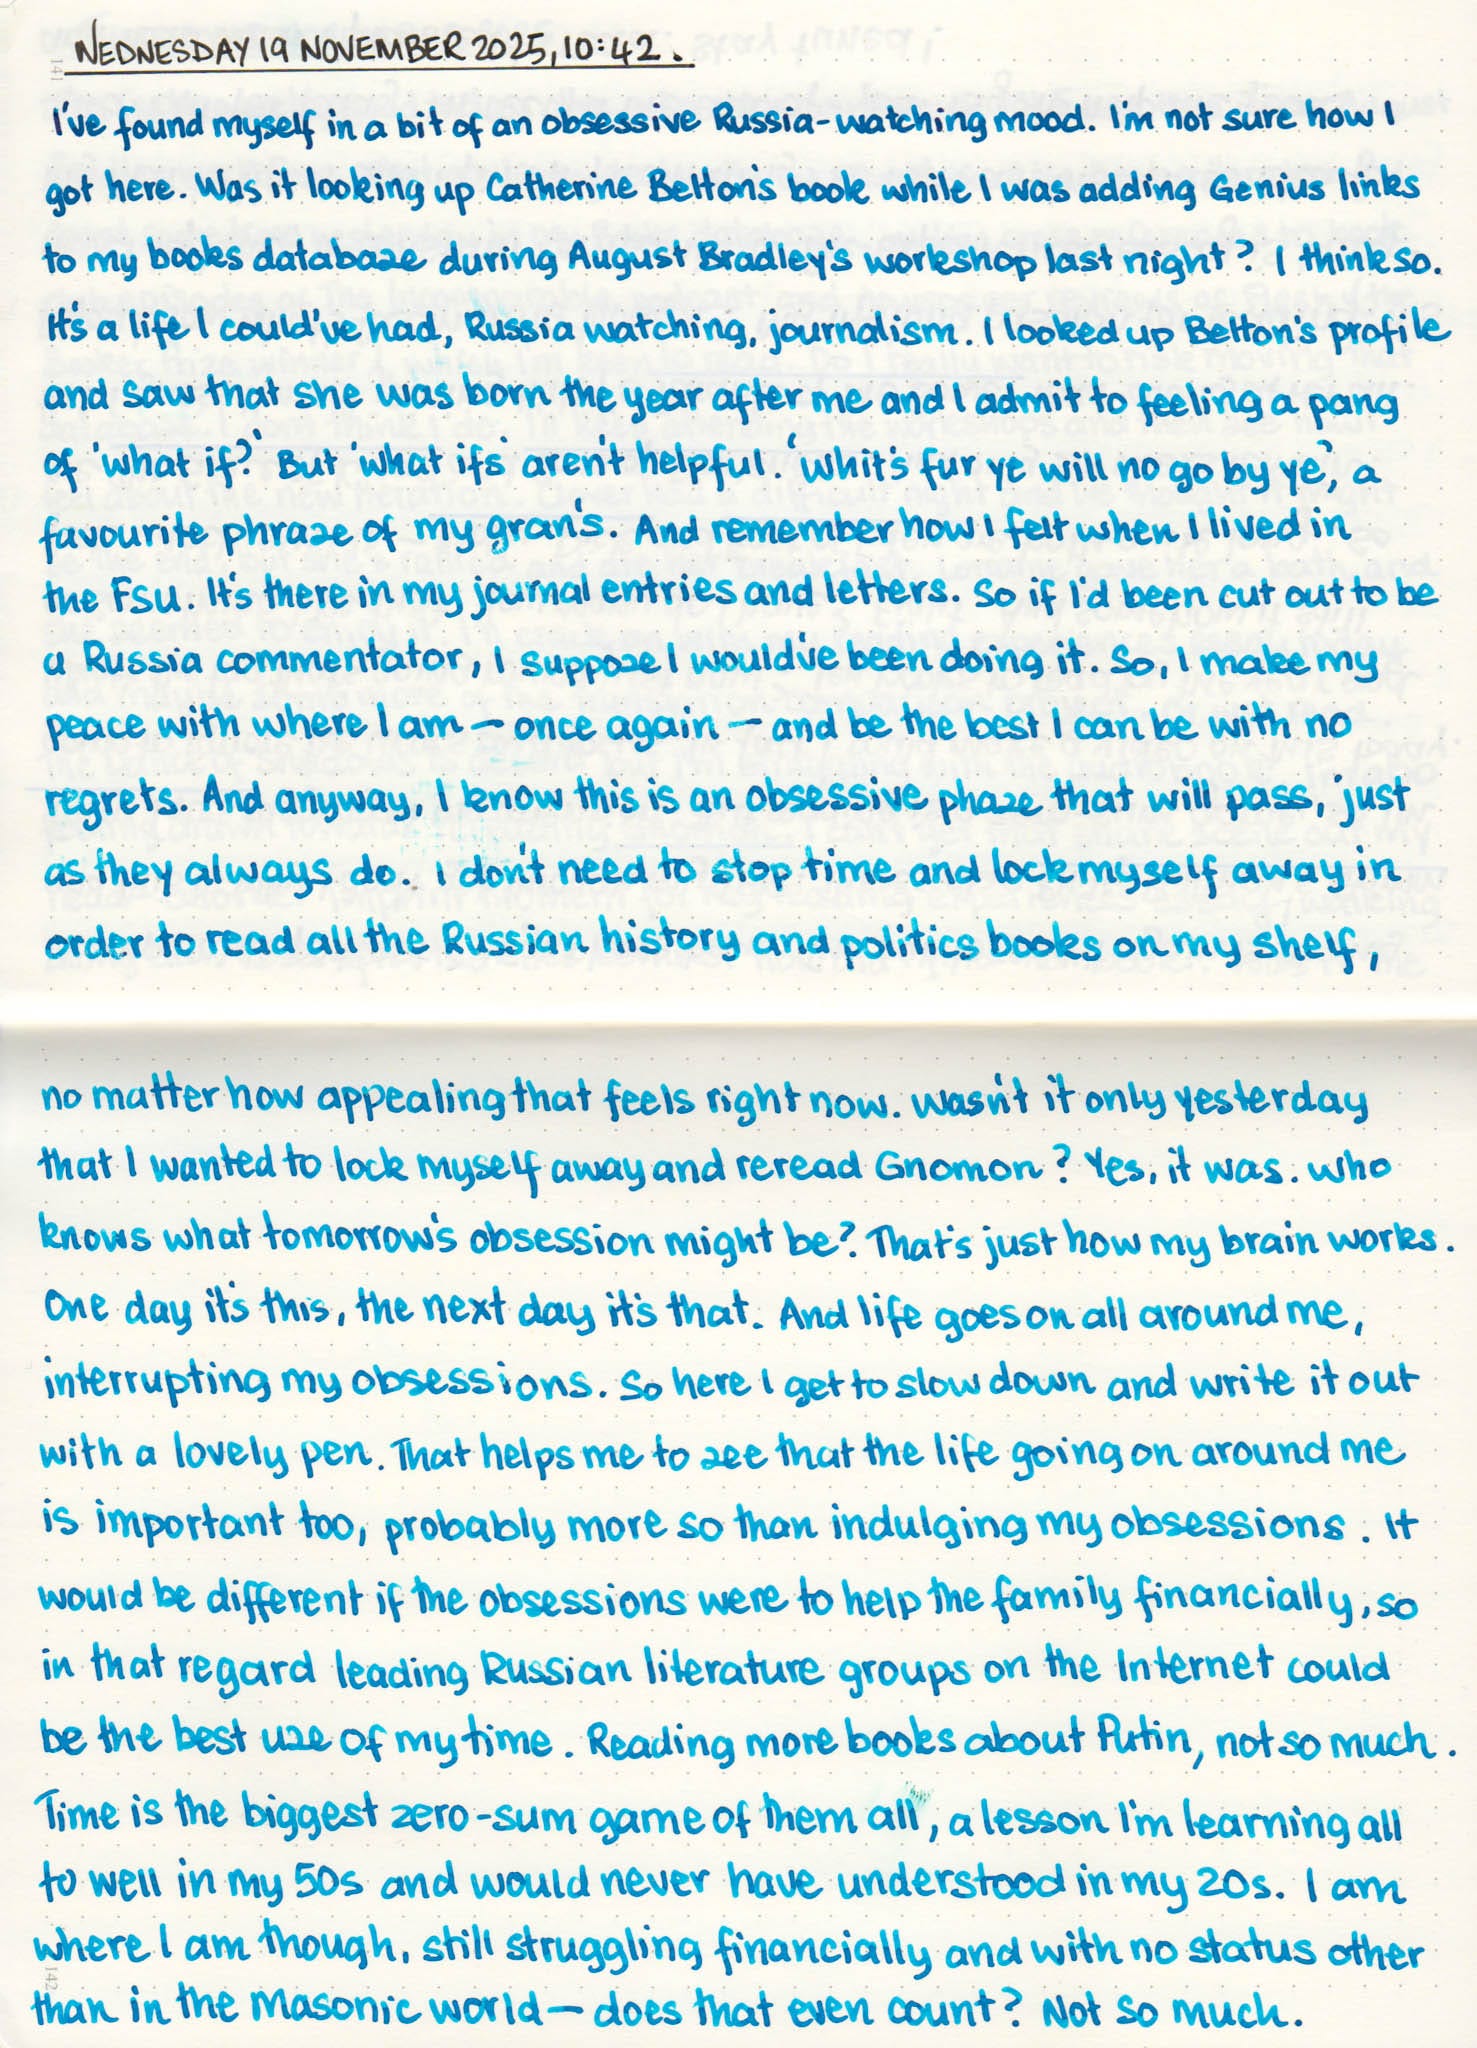 WEDNESDAY 19 NOVEMBER 2025, 10:42.
I've found myself in a bit of an obsessive Russia-watching mood. I'm not sure how I
got here. Was it looking up Catherine Belton's book while I was adding Genius links
to my books database during August Bradley's workshop last night? I think so.
It's a life I could've had, Russia watching, journalism. I looked up Belton's profile
and saw that she was born the year after me and I admit to feeling a pang
of 'what if?' But 'what ifs' aren't helpful. 'Whit's fur ye will no go by ye', a
favourite phrase of my gran's. And remember how I felt when I lived in
the FSU. It's there in my journal entries and letters. So if I'd been cut out to be
a Russia commentator, I suppose I would've been doing it. So, I make my
peace with where I am – once again – and be the best I can be with no
regrets. And anyway, I know this is an obsessive phase that will pass, just
as they always do. I don't need to stop time and lock myself away in
order to read all the Russian history and politics books on my shelf,
no matter how appealing that feels right now. Wasn't it only yesterday
that I wanted to lock myself away and reread Gnomon? Yes, it was. Who
knows what tomorrow's obsession might be? That's just how my brain works.
One day it's this, the next day it's that. And life goes on all around me,
interrupting my obsessions. So here I get to slow down and write it out
with a lovely pen. That helps me to see that the life going on around me
is important too, probably more so than indulging my obsessions. It
would be different if the obsessions were to help the family financially, so
in that regard leading Russian literature groups on the Internet could
be the best use of my time. Reading more books about Putin, not so much.
Time is the biggest zero-sum game of them all, a lesson I'm learning all
to well in my 50s and would never have understood in my 20s. I am
where I am though, still struggling financially and with no status other
than in the Masonic world – does that even count? Not so much.
141
142